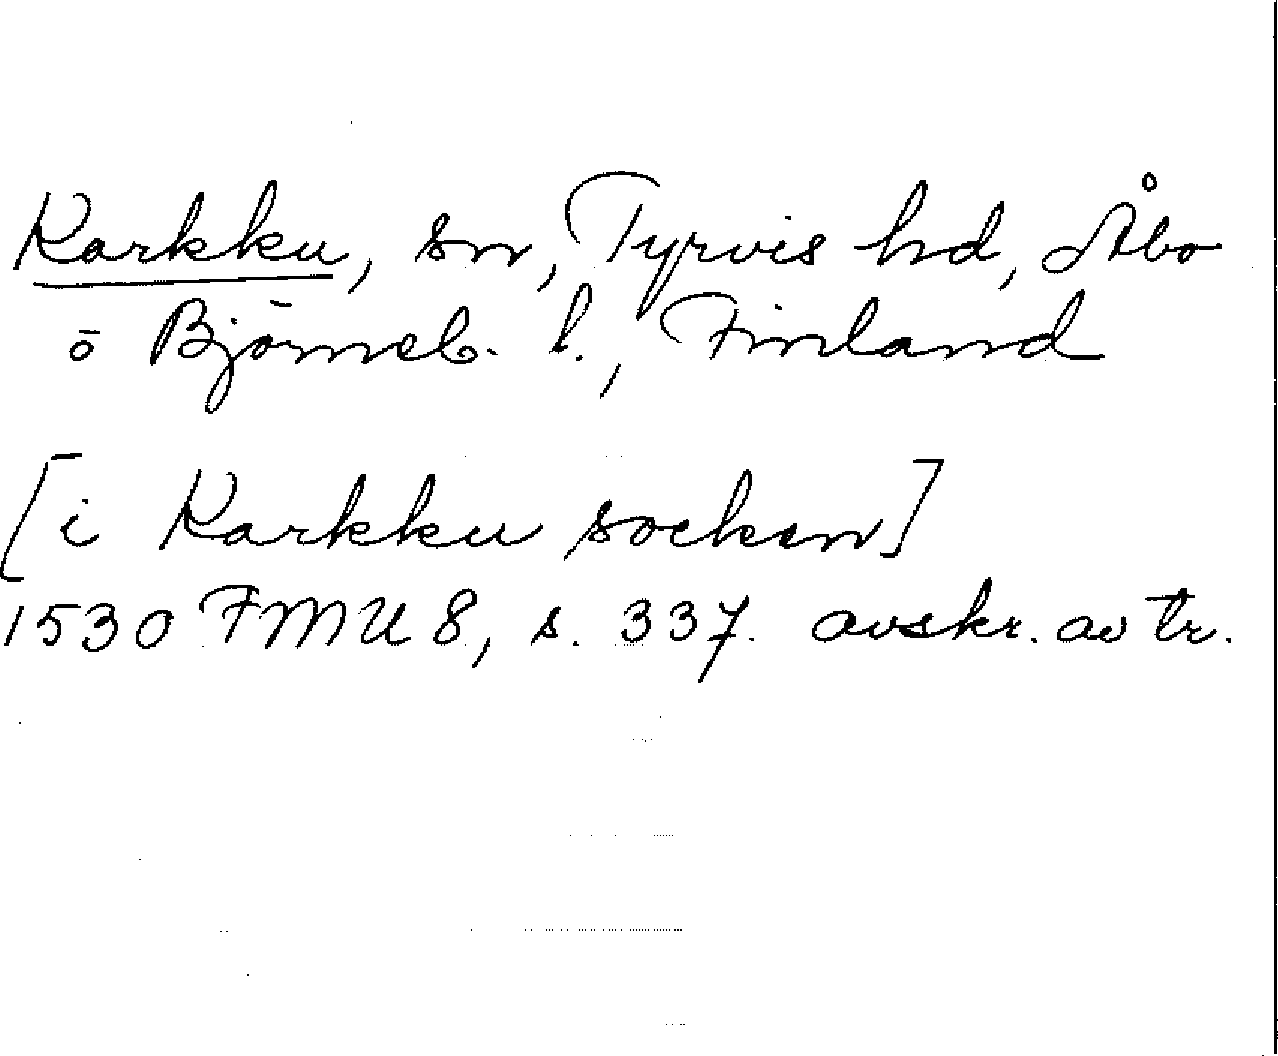 Karkku, sn, Tyrvis hd, Åbo
o Björneb. l., Finland
[i Karkku socken]
1530 FMU 8, s. 337. avskr. av tr.